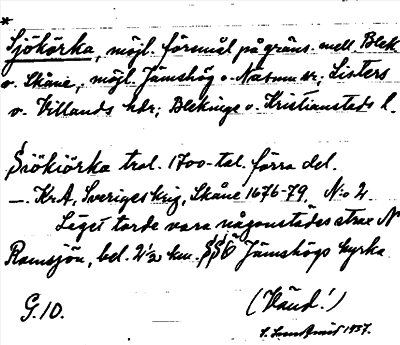 *
Sjökörka, möjl. förmål på gräns. mell. Blek
o. Skåne, möjl. Jämshög o. Näsum sr; Listers
o. Villands hdr; Blekinge o. Kristianstads l.
Siökiörka trol. 1700-tal. förra del.
—. KrA, Sveriges krig, Skåne 1676-79, N:o 2.
Läget torde vara någonstädes strax N
Ramsjön, bel. 2 1/2 km. SSO Jämshögs kyrka
G. 10. (Vänd!)
1937.